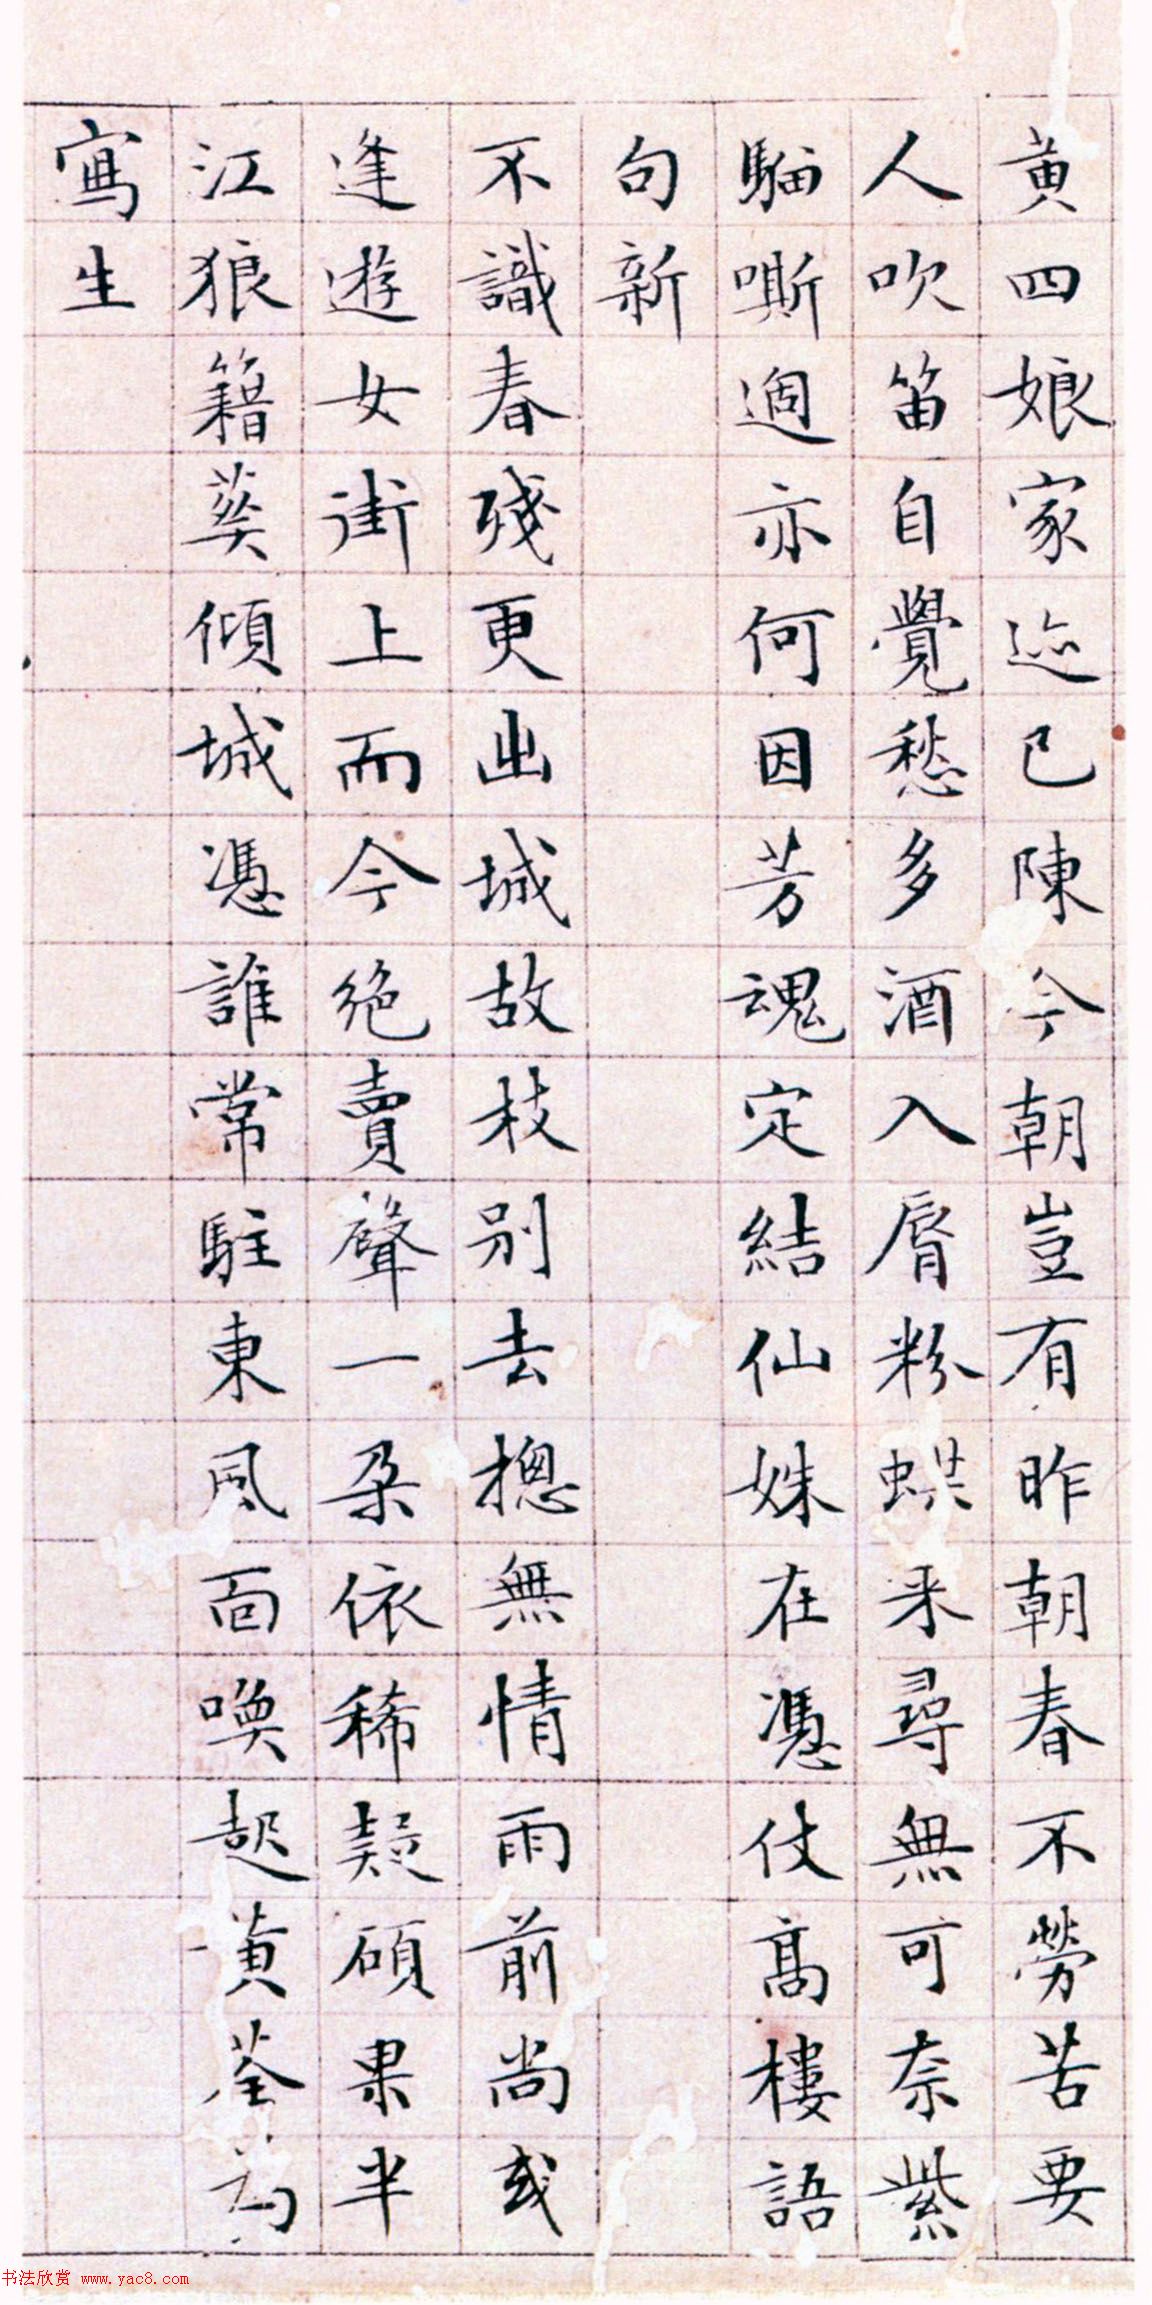 黄四娘家迹已陳今朝豈有昨朝春不勞苦要
人吹笛自覺愁多酒入脣粉蜨来尋無可奈紫
騮嘶過亦何因芳魂定結仙姝在憑仗高樓語
句新
不識春殘更出城故枝別去揔無情雨前尚或
逢遊女街上而今絶賣聲一朶依稀疑碩果半
江狼籍葬傾城憑誰常駐東風面喚起黄荃為
寫生
书法欣赏 www.yac8.com